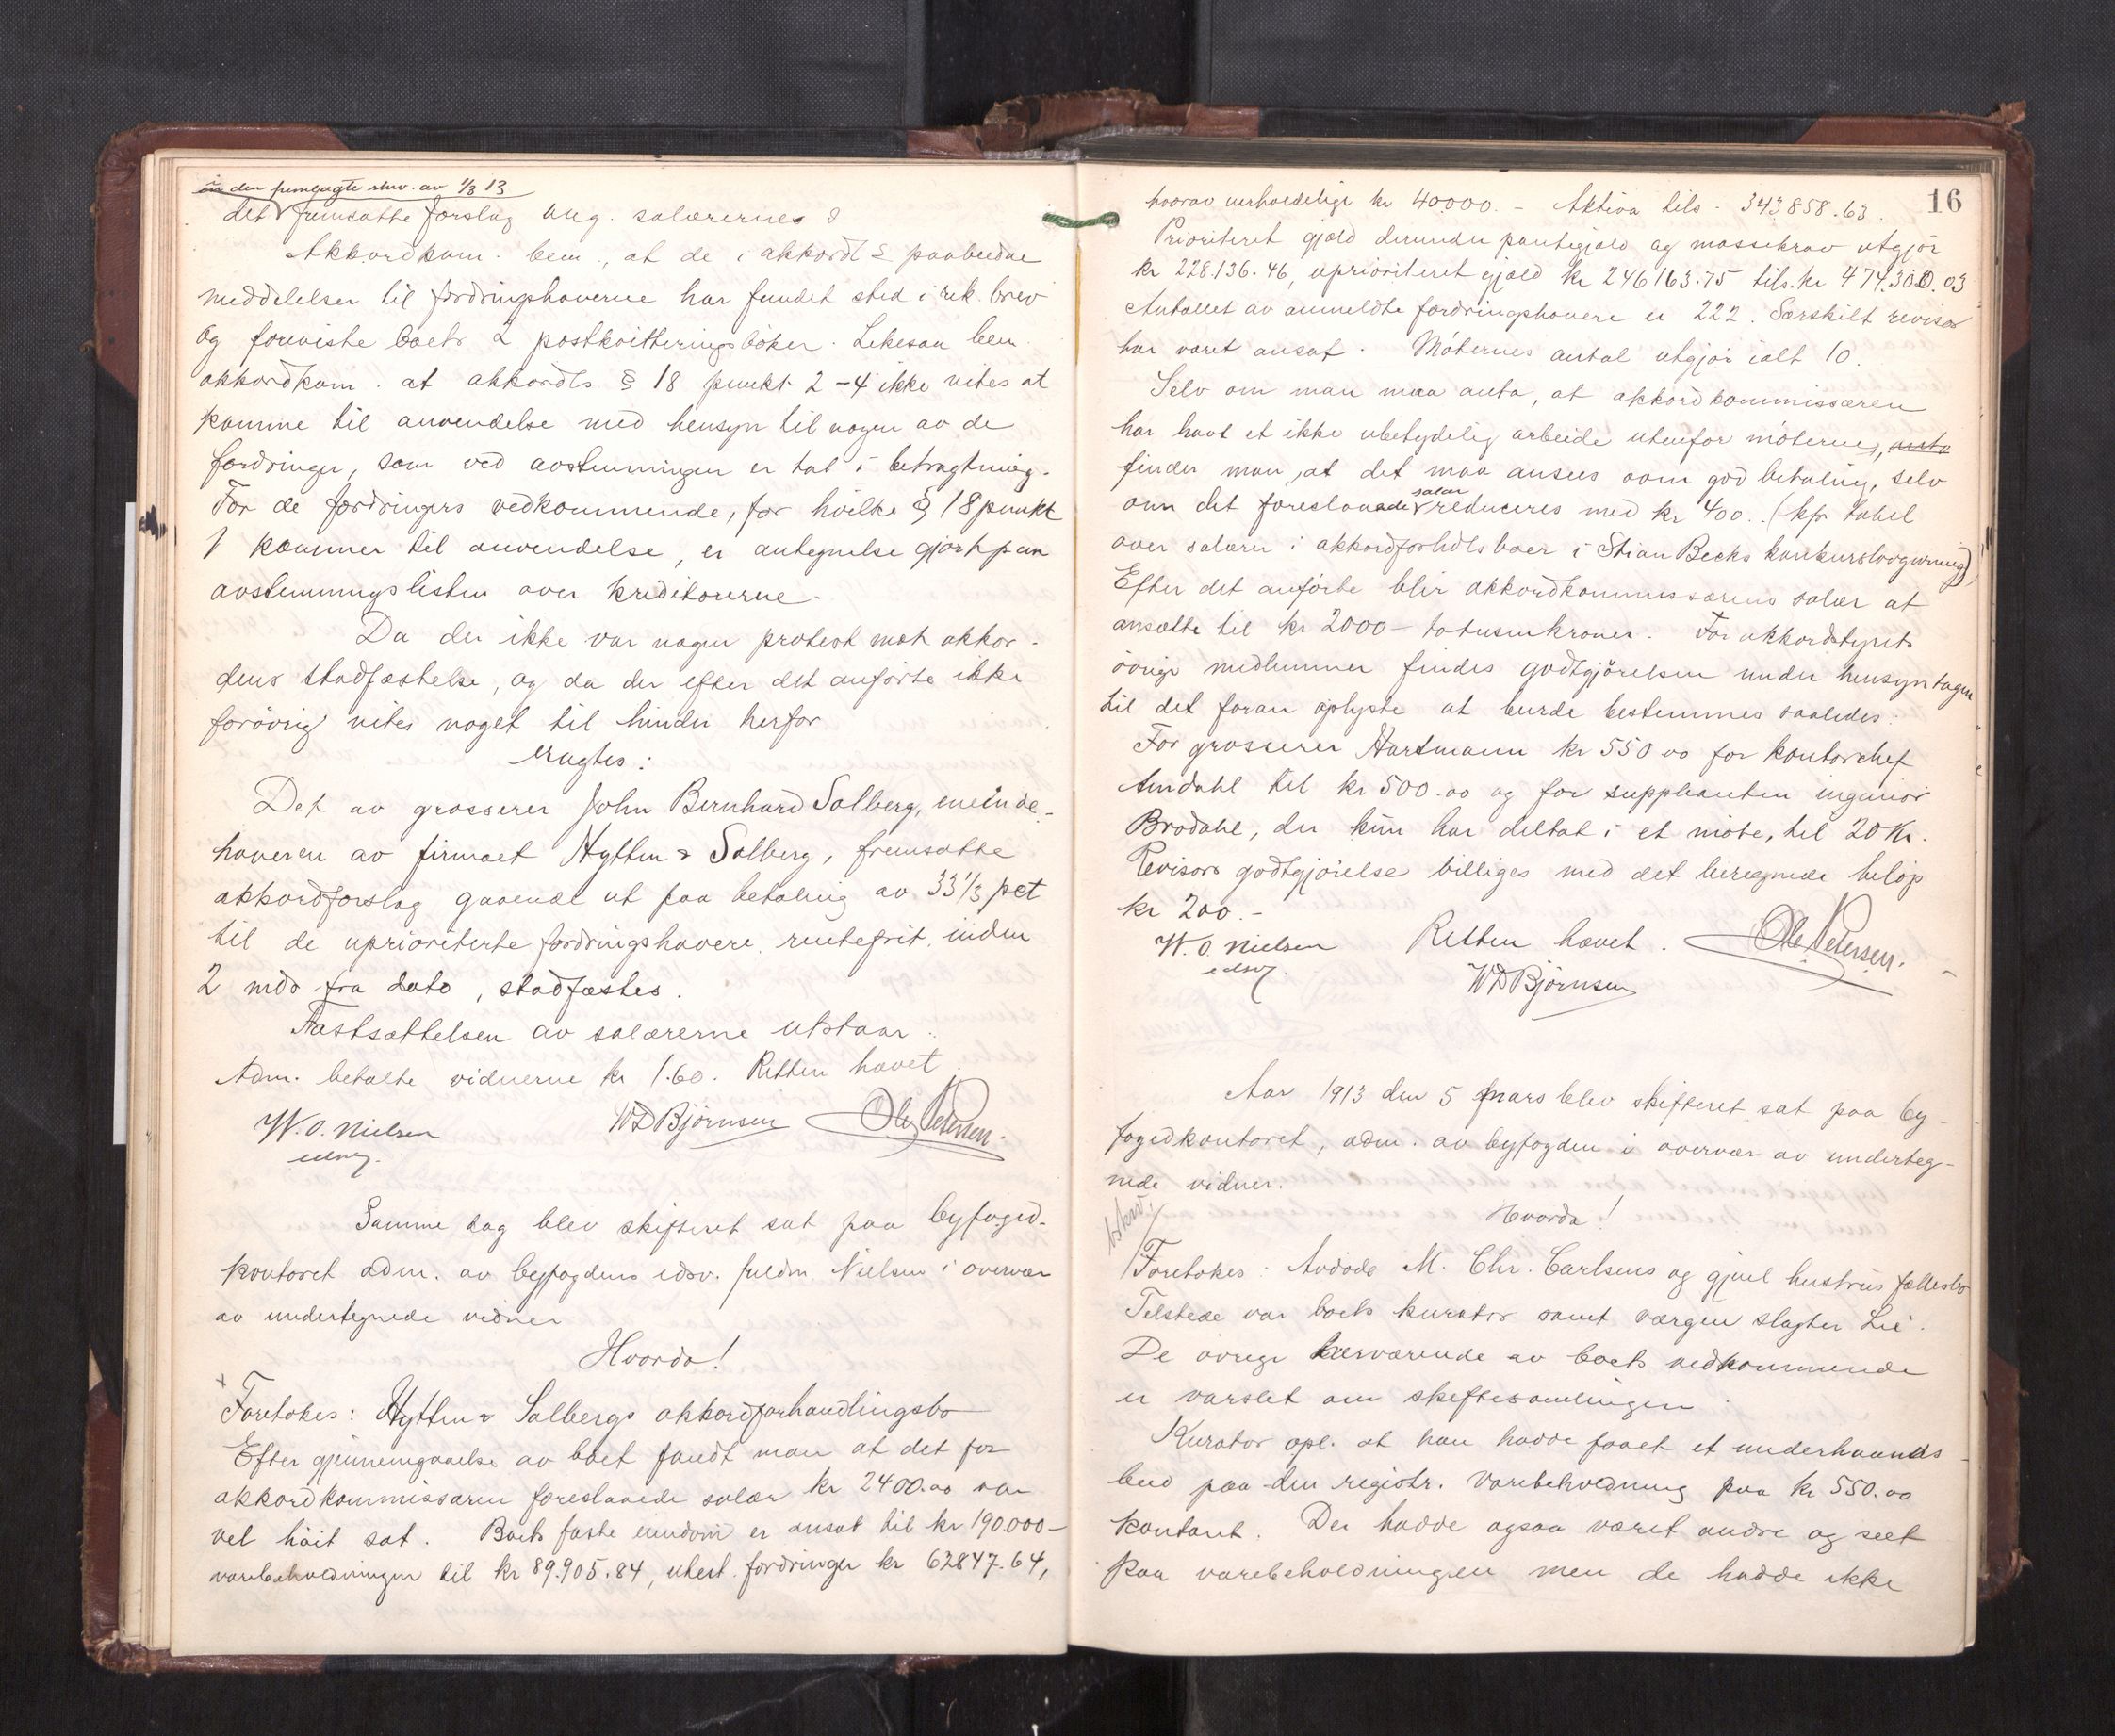 i den fremlagte skr. av 1/3 13
det fremsatte forslag ang. salærernes
Akkordkom. bem., at de i akkordl. paabudne
meddelelser til fordringshaverne har fundet sted i rek. brev
og foreviste boets 2 postkvitteringsböker. Likesaa bem.
akkordkom. at akkordls § 18 punkt 2-4 ikke vites at
komme til anvendelse med hensyn til nogen av de
fordringer, som ved avstemningen er tat i betragtning.
For de fordringers vedkommende, for hvilke § 18 punkt
1 kommer til anvendelse, er antegnelse gjort paa
avstemningslisten over kreditorerne.
Da der ikke var nogen protest mot akkor-
dens stadfæstelse, og da der efter det anförte ikke
forövrig vites noget til hinder herfor
eragtes:
Det av grosserer John Bernhard Solberg, eneinde-
haveren av firmaet Hytten & Solberg, fremsatte
akkordforslag gaaende ut paa betaling av 33 1/3 pct
til de uprioriterte fordringshavere, rentefrit, inden
2 mdr fra dato, stadfæstes.
Fastsættelsen av salærerne utstaar.
Adm. betalte vidnerne kr 1.60. Retten hævet.
W. O. Nielsen
edsv.
WDBjörnsen Ole Petersen.
Samme dag blev skifteret sat paa byfoged-
kontoret adm. av byfogdens edsv. fuldm Nielsen i overvær
av undertegnede vidner
Hvorda!
Foretokes: Hytten & Solbergs akkordforhandlingsbo
Efter gjennemgaaelse av boet fandt man at det for
akkordkommissæren foreslaaede salær kr 2400.00 var
vel höit sat. Boets faste eiendom er ansat til kr 190.000-
varebeholdningen til kr 89.905.84, utest. fordringer kr 62847.64,
16
hvorav uerholdelige kr 40.000.- Aktiva tils. 343.858.63.
Prioriteret gjæld derunder pantegjæld og massekrav utgjör
kr 228.136.46, uprioriteret gjæld kr 246163.75 tils. kr 474.300.03
Antallet av anmeldte fordringshavere er 222. Særskilt revisor
har været ansat. Möternes antal utgjör ialt 10.
Selv om man maa anta, at akkordkommissæren
har havt et ikke ubetydelig arbeide utenfor möterne, anta
finder man, at det maa ansees som god betaling, selv
om det foreslaaede salær reduceres med kr 400.. (kfr tabel
over salærer i akkordforhdlsboer i Stian Becks konkurslovgivning)
Efter det anförte blir akkordkommissærens salær at
ansætte til kr 2000 - totusenkroner. For akkordstyrets
övrige medlemmer findes godtgjörelsen under hensyntagen
til det foran oplyste at burde bestemmes saaledes:
For grosserer Hartmann kr 550.00 for kontorchef
Amdahl til kr 500.00 og for suppleanten ingeniör
Brodahl, der kun har deltat i et möte, til 20 Kr.
Revisors godtgjörelse billiges med det beregnede belöp
kr 200.-
W. O. Nielsen Retten hævet. Ole Petersen.
edsv.
WDBjörnsen
Aar 1913 den 5 mars blev skifteret sat paa by-
fogedkontoret, adm. av byfogden i overvær av underteg-
nede vidner.
Hvorda!
Foretokes: Avdöde M. Chr. Carlsens og gjenl. hustrus fællesbo
Tilstede var boets kurator samt værgen slagter Lie.
De övrige herværende av boets vedkommende
er varslet om skiftesamlingen
Kurator opl. at han hadde faaet et underhaands-
bud paa den registr. varebeholdning paa kr 550.00
kontant. Der hadde ogsaa været andre og seet
paa varebeholdningen men de hadde ikke